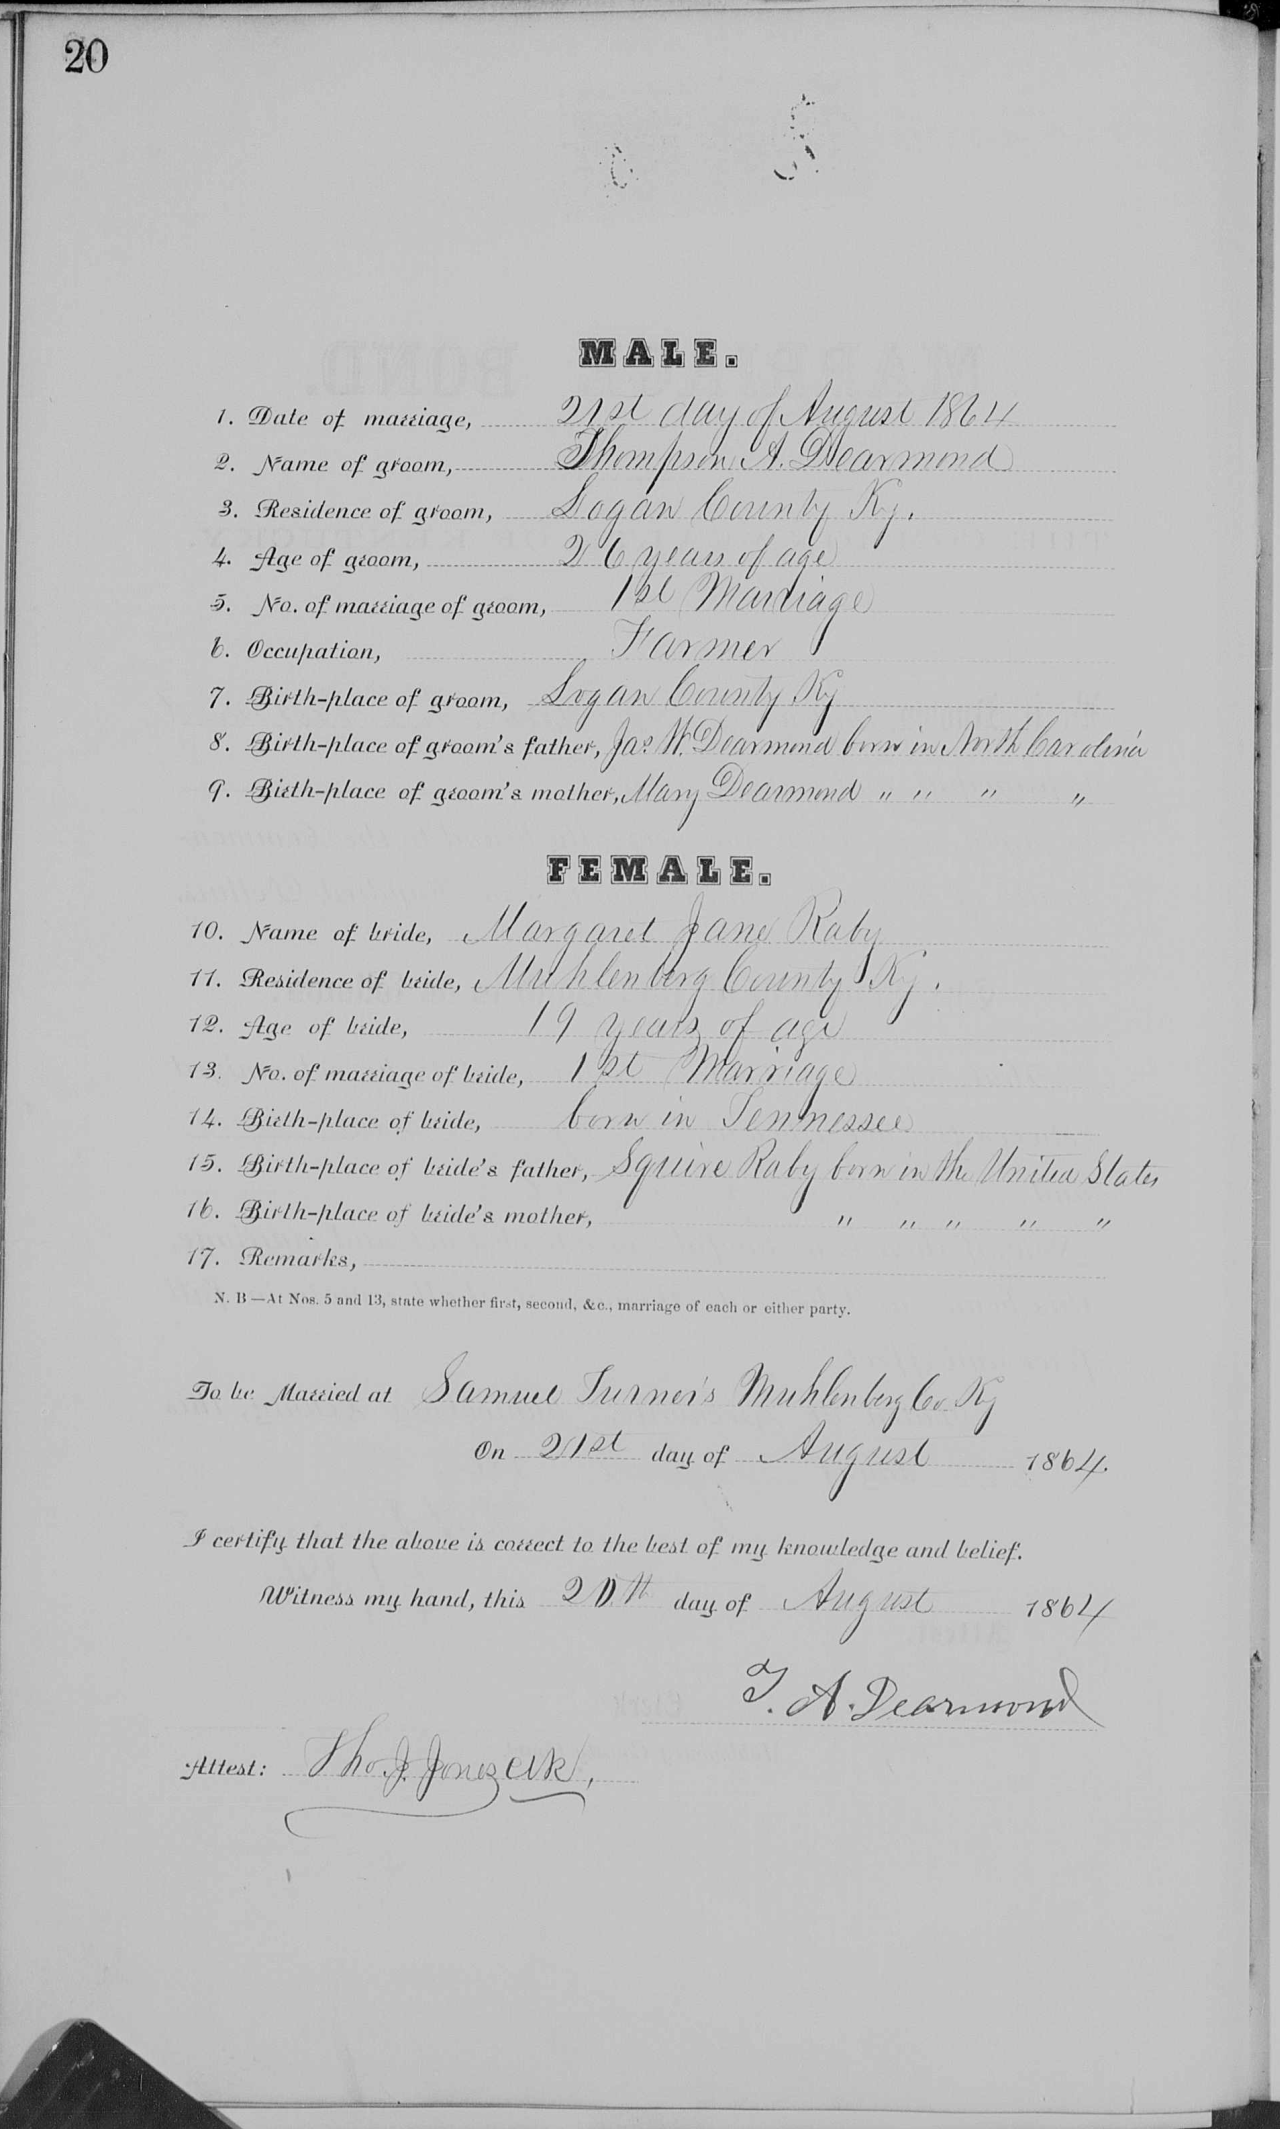 20
MALE.
1. Date of marriage, 21st day of August 1864
2. Name of groom, Thompson A. Dearmond
3. Residence of groom, Logan County Ky.
4. Age of groom, 26 years of age
5. No. of marriage of groom, 1st Marriage
6. Occupation, Farmer
7. Birth-place of groom, Logan County Ky
8. Birth-place of groom's father, Jas. W. Dearmond born in North Carolina
9. Birth-place of groom's mother, Mary Dearmond " " " "
FEMALE.
10. Name of bride, Margaret Jane Raby
11. Residence of bride, Muhlenberg County Ky.
12. Age of bride, 19 years of age
13. No. of marriage of bride, 1st Marriage
14. Birth-place of bride, born in Tennessee
15. Birth-place of bride's father, Squire Raby born in the United States
16. Birth-place of bride's mother, " " " " "
17. Remarks,
N. B—At Nos. 5 and 13, state whether first, second, &c., marriage of each or either party.
To be Married at Samuel Turner's Muhlenberg Co. Ky
On 21st day of August 1864.
I certify that the above is correct to the best of my knowledge and belief.
Witness my hand, this 20th day of August 1864
T. A. Dearmond
Attest: Tho. J. Jones Clk.